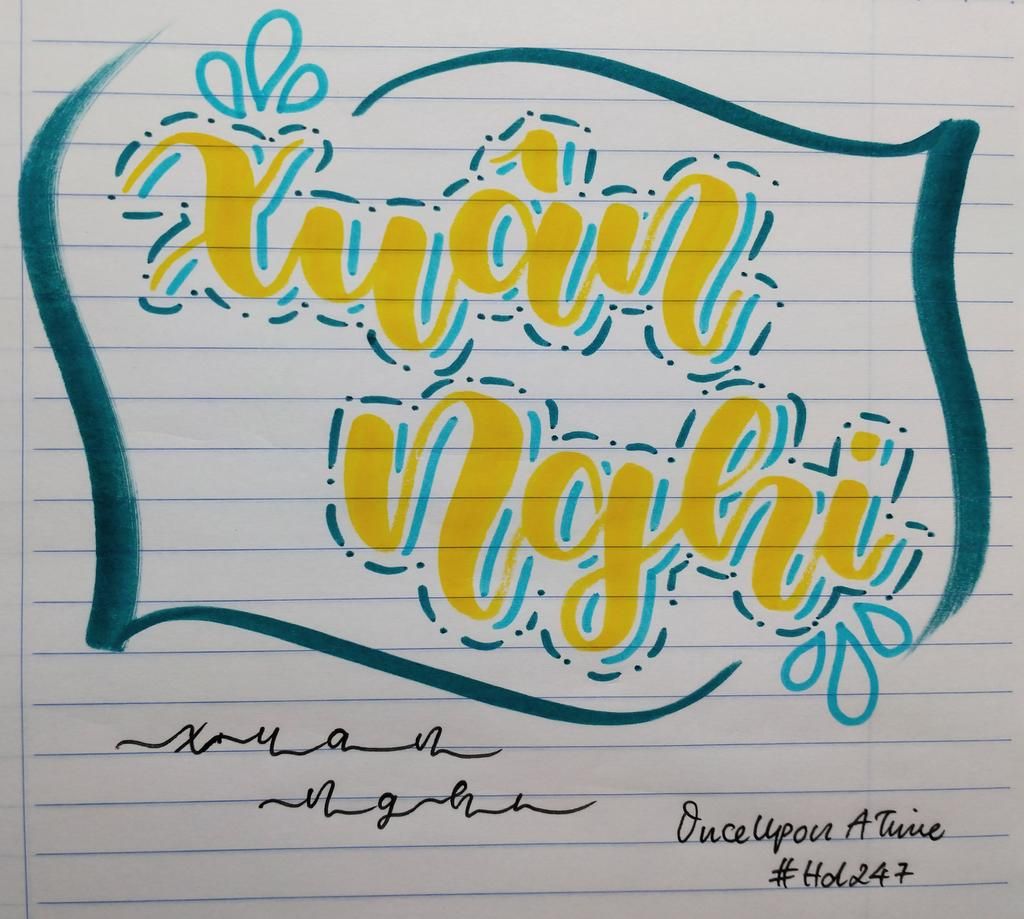 Xuân
Nghi
xuan
nghi
Once Upon A Time
#Hol247